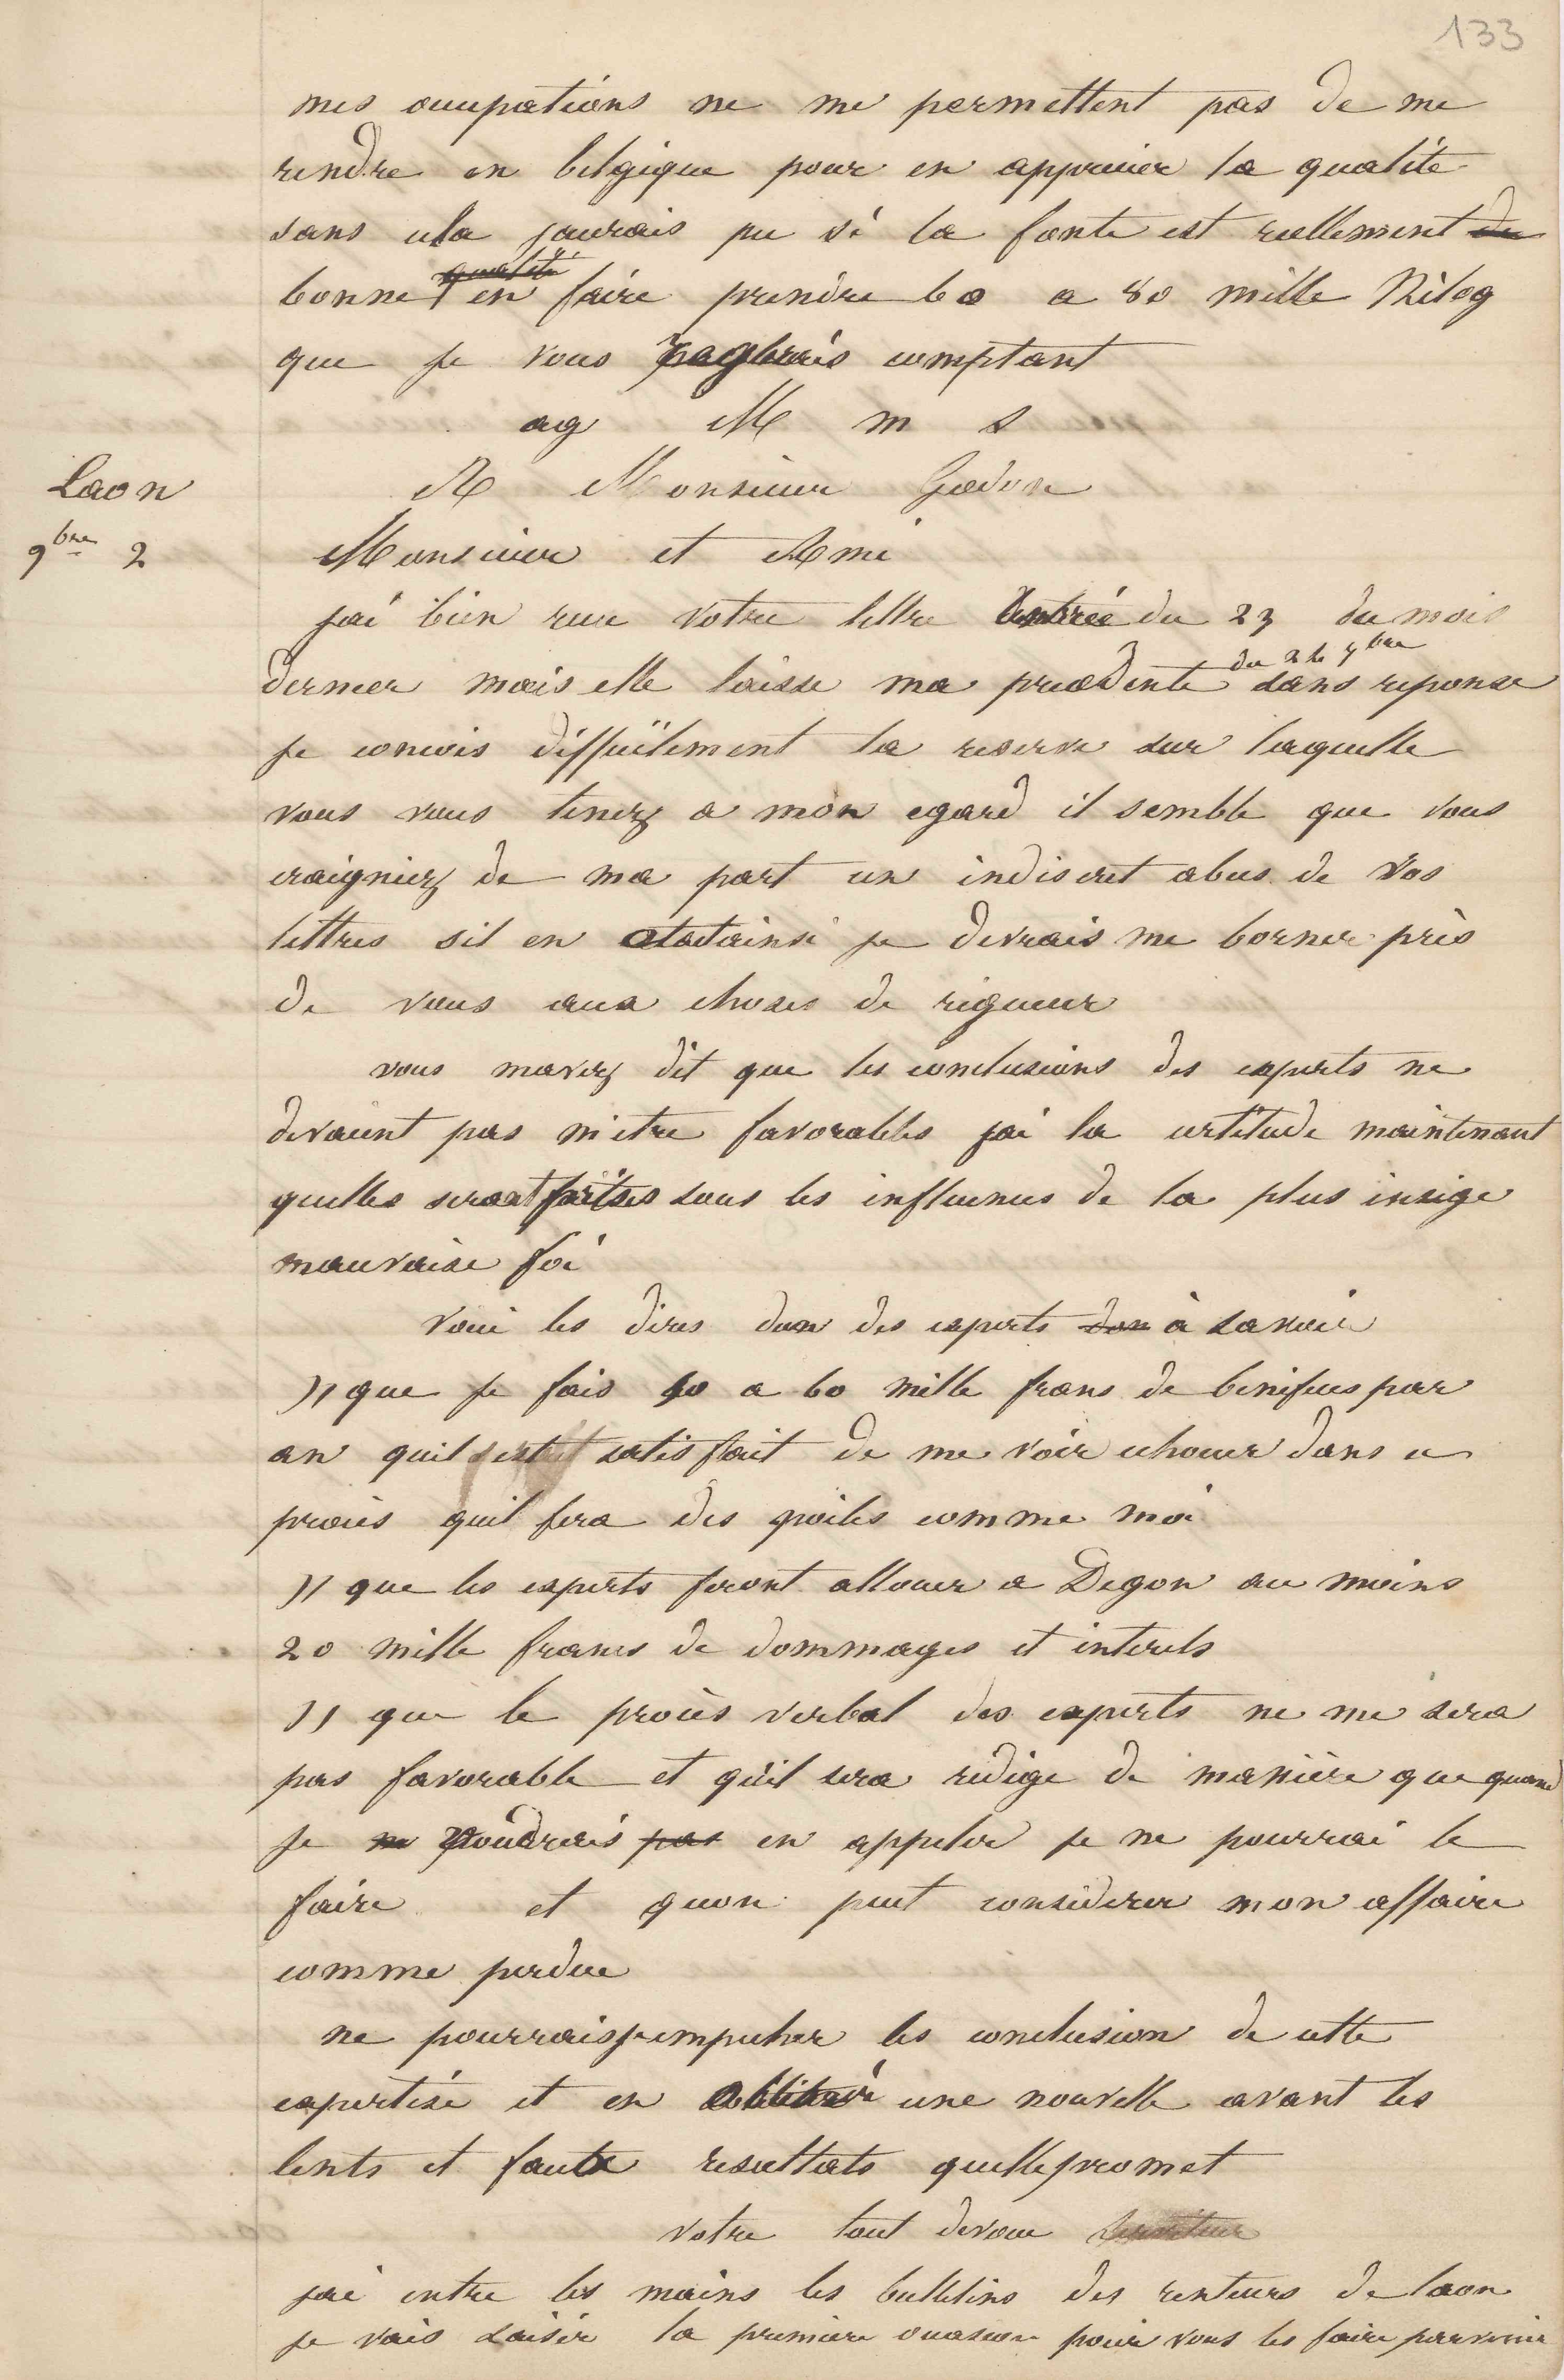 133
mes occupations ne me permettent pas de me
rendre en belgique pour en apprecier la qualité
sans cela jaurais pu si la fonte est reellement de
qualité
bonne en faire prendre 60 a 80 mille Kilog
que je vous paylerais comptant
ag M m s
A Monsieur Godon
Laon
9bre 2
Monsieur et Ami
jai bien recu votre lettre du 23 du mois
du 2 de 7bre
dernier mais elle laisse ma precedente sans reponse
je concois difficilement la reserve sur laquelle
vous vous tenez a mon egard il semble que vous
craigniez de ma part un indiscret abus de vos
lettres sil en etait ainsi je devrais me borner près
de vous aux choses de rigueur
vous mavez dit que les conclusions des experts ne
devaient pas mètre favorables jai la certitude maintenant
quelles seront faites sous les influences de la plus insige
mauvaise foi
voici les dires dun des experts dun à savoir
)) que je fais 50 a 60 mille frans de benifices par
an quil est satisfait de me voir echouer dans ce
procès quil fera des poiles comme moi
)) que les experts feront allouer a Degon au moins
20 mille francs de dommages et interets
)) que le procès verbal des experts ne me sera
pas favorable et quil sera redige de manière que quand
je ne voudrais pas en appeler je ne pourrai le
faire et quon peut considerer mon affaire
comme perdue
ne pourraisje empecher les conclusion de cette
expertise et en une nouvelle avant les
lents et faux resultats quelle promet
votre tout devoue serviteur
jai entre les mains les bulletins des renteurs de laon
je vais saisir la premiere occasion pour vous les faire parvenir